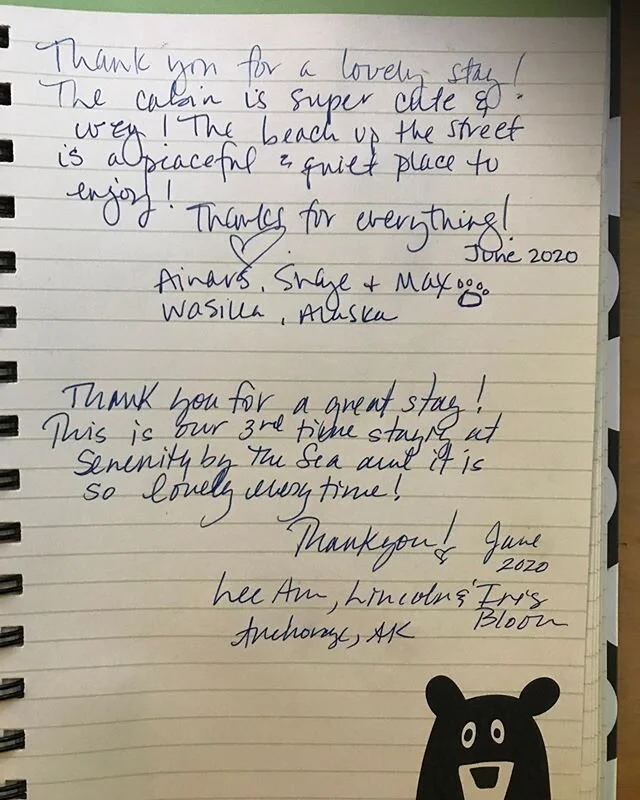 Thank you for a lovely stay!
The cabin is super cute &
cozy! The beach up the street
is a peaceful & quiet place to
enjoy!
Thanks for everything!
June 2020
Ainars, & Max
Wasilla, Alaska
Thank you for a great stay!
This is our 3rd time staying at
Serenity by the Sea and it is
so lovely every time!
Thank you! June
2020
Lee Ann, Lincoln & Iris
Bloom
Anchorage, AK